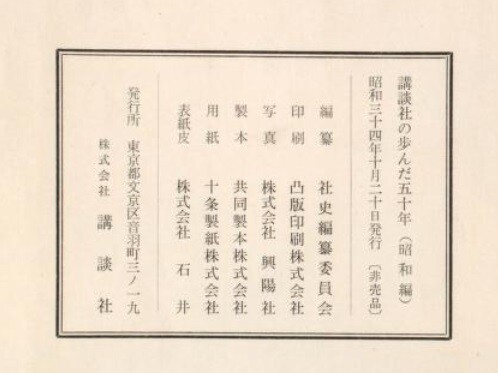 講談社の歩んだ五十年(昭和編)
昭和三十四年十月二十日発行〔非売品〕
編纂 社史編纂委員会
印刷 凸版印刷株式会社
写真 株式会社興陽社
製本 共同製本株式会社
用紙 十条製紙株式会社
表紙皮 株式会社石井
発行所 東京都文京区音羽町三ノ一九
株式会社 講談社